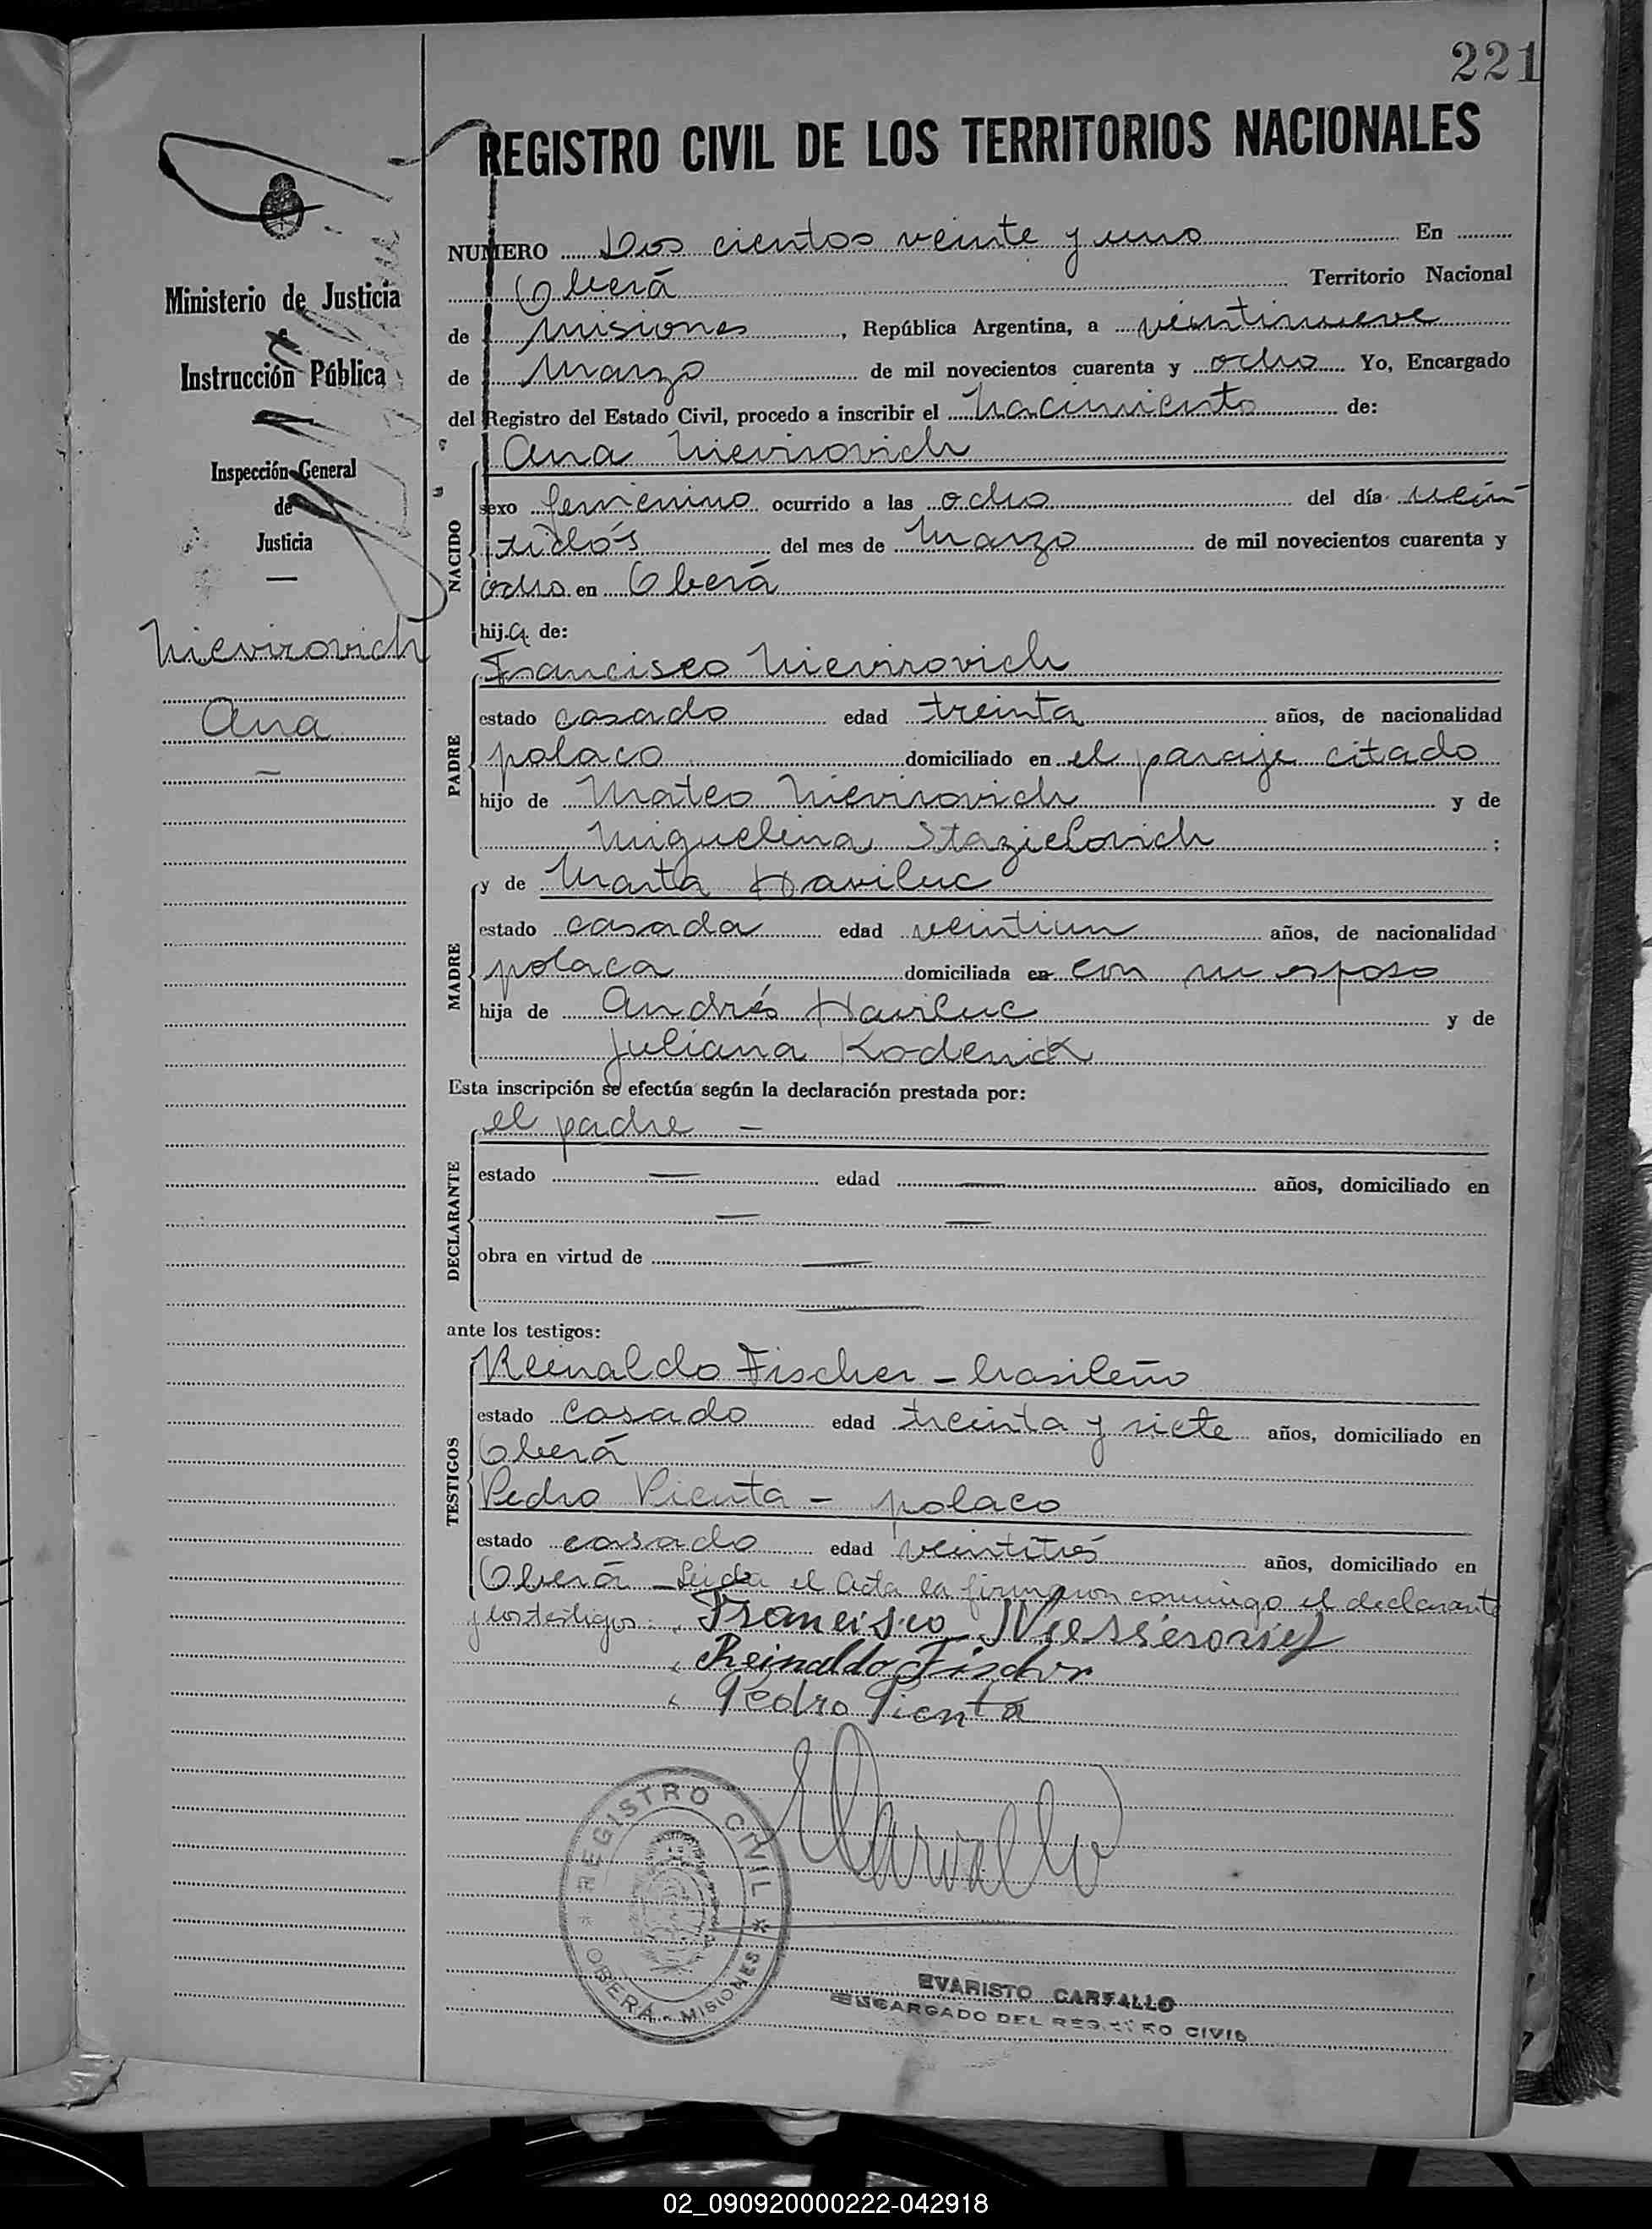 221
REGISTRO CIVIL DE LOS TERRITORIOS NACIONALES
NUMERO Dos cientos veinte y uno En
Oberá Territorio Nacional
de Misiones, República Argentina, a veintinueve
de Marzo de mil novecientos cuarenta y ocho Yo, Encargado
del Registro del Estado Civil, procedo a inscribir el Nacimiento de:
Ministerio de Justicia
e
Instrucción Pública
Inspección General
de
Justicia
Nievirovich
Ana
NACIDO
Ana Nievirovich
sexo femenino ocurrido a las ocho del día vein
tidós del mes de Marzo de mil novecientos cuarenta y
ocho en Oberá
hija de:
PADRE
Francisco Nievirovich
estado casado edad treinta años, de nacionalidad
polaco domiciliado en el paraje citado
hijo de Mateo Nievirovich y de
Miguelina Stazielovich;
MADRE
y de Marta Haviluc
estado casada edad veintiun años, de nacionalidad
polaca domiciliada en con su esposo
hija de Andrés Haviluc y de
Juliana Kodenick
Esta inscripción se efectúa según la declaración prestada por:
DECLARANTE
el padre —
estado — edad — años, domiciliado en
— —
obra en virtud de —
—
ante los testigos:
TESTIGOS
Reinaldo Fischer - brasileño
estado casado edad treinta y siete años, domiciliado en
Oberá
Pedro Pienta - polaco
estado casado edad veintitrés años, domiciliado en
Oberá - Leida el Acta la firmaron conmigo el declarante
y los testigos:
Francisco
Reinaldo Fischer
Pedro Pienta
REGISTRO CIVIL
OBERÁ - MISIONES
EVARISTO CARVALLO
ENCARGADO DEL REGISTRO CIVIL
02_090920000222-042918